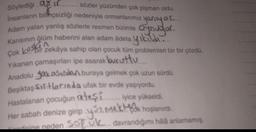 Söylediği ağır sözler yüzünden çok pişman oldu.
İnsanların bilinçsizliği nedeniyle ormanlarımız yanıyor.
Adam yalan yanlış sözlerle resmen bizimle oynuyor.
Karısının ölüm haberini alan adam âdeta yıkıldı.
Çok keskin zekâya sahip olan çocuk tüm problemleri bir bir çözdü.
Yıkanan çamaşırları ipe asarak kuruttu
Anadolu yakasından buraya gelmek çok uzun sürdü.
Beşiktaş sırtlarında ufak bir evde yaşıyordu.
Hastalanan çocuğun ateşi iyice yükseldi.
Her sabah denize girip yüzmekten hoşlanırdı.
neden soğuk davrandığımı hâlâ anlamamış.